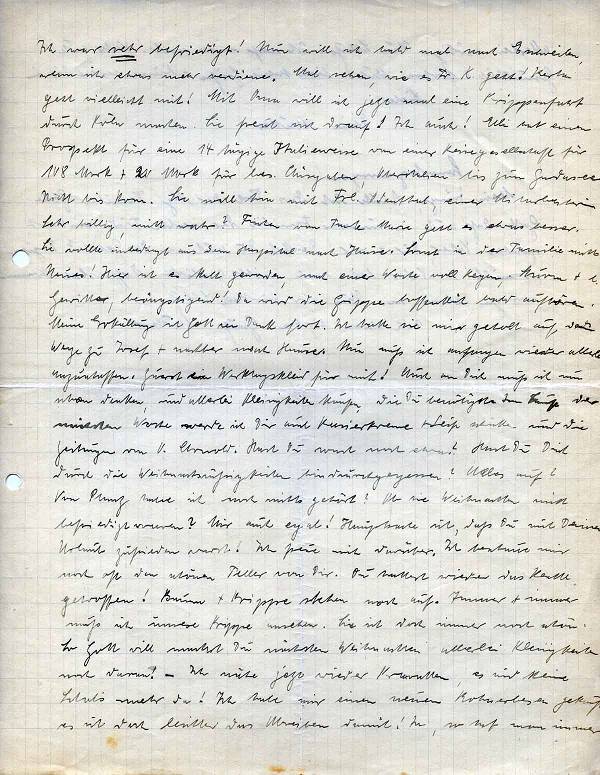 Ich war sehr befriedigt! Nun will ich bald mal nach Eschweiler,
wenn ich etwas mehr verdiene. Mal sehen, wie es Fr. K. geht! Herta
geht vielleicht mit! Mit Oma will ich jetzt mal eine Krippenfahrt
durch Köln machen. Sie freut sich drauf! Ich auch! Elli hat einen
Prospekt für eine 14 tägige Italienreise von einer Reisegesellschaft für
118 Mark + 20 Mark für bes. Ausgaben, bis zum Gardasee
Nicht bis Rom. Sie will hin mit Frl. einer Mitarbeiterin
Sehr billig, nicht wahr? von Tante Marie geht es etwas besser.
Sie wollte unbedingt aus dem Hospital nach Hause. Sonst in der Familie nichts
Neues! Hier ist es kalt geworden, nach einer Woche voll Regen, Sturm +
Gewitter, beängstigend! Da wird die Grippe hoffentlich bald aufhören.
Meine Erkältung ist Gott sei Dank fort. Ich hatte sie mir geholt auf dem
Wege zu Josef + nachher nach Hause. Nun muß ich anfangen wieder allerlei
anzuschaffen. Zuerst ein Werktagskleid für mich! Auch an Dich muß ich nun
schon denken, und allerlei Kleinigkeiten kaufen, die Du benötigst. der
nächsten Woche werde ich Dir auch Rasiercreme + Seife schicken und die
Zeitungen von V. Hast Du noch etwas? Hast Du Dich
durch die Weihnachtssüßigkeiten hindurchgegessen? Alles auf?
Von habe ich noch nichts gehört! Ob sie Weihnachten nicht
befriedigt waren? Mir auch egal! Hauptsache ist, daß Du mit Deinen
zufrieden warst! Ich freue mich darüber. Ich beschaue mir
noch oft den schönen Teller von Dir. Du hattest wieder das Rechte
getroffen! Baum + Krippe stehen noch auf. Immer + immer
muß ich unsere Krippe ansehen. Sie ist doch immer noch schön.
So Gott will machst Du nächsten Weihnachten allerlei Kleinigkeiten
noch daran! – Ich nähe jetzt wieder Krawatten, es sind keine
Schals mehr da! Ich habe mir einen neuen Bohnerbesen gekauft
es ist doch leichter das damit! So, so hat man immer